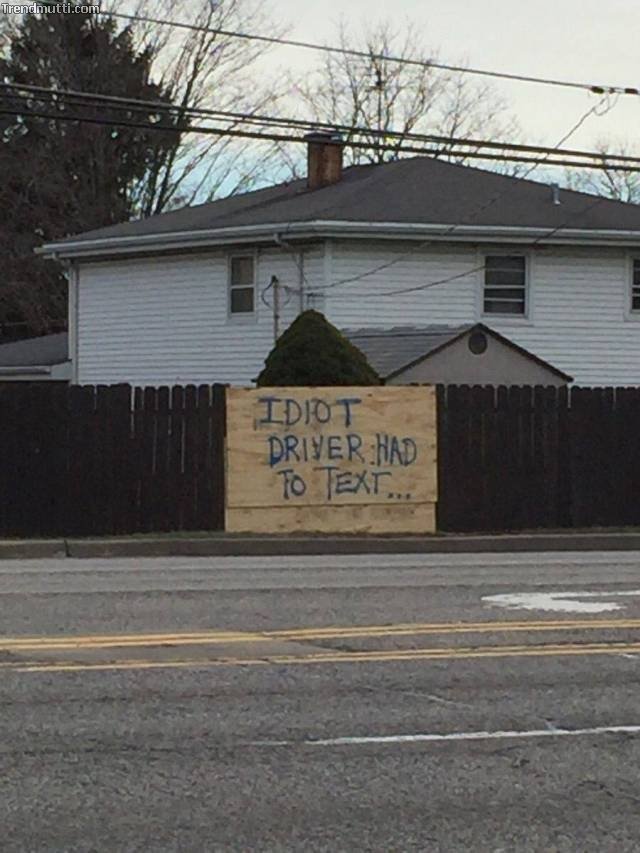 Trendmutti.com
IDIOT
DRIVER HAD
TO TEXT...